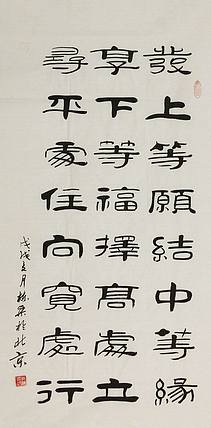 發上等願結中等緣
享下等福擇高處立
尋平處住向寬處行
戊戌月於北京